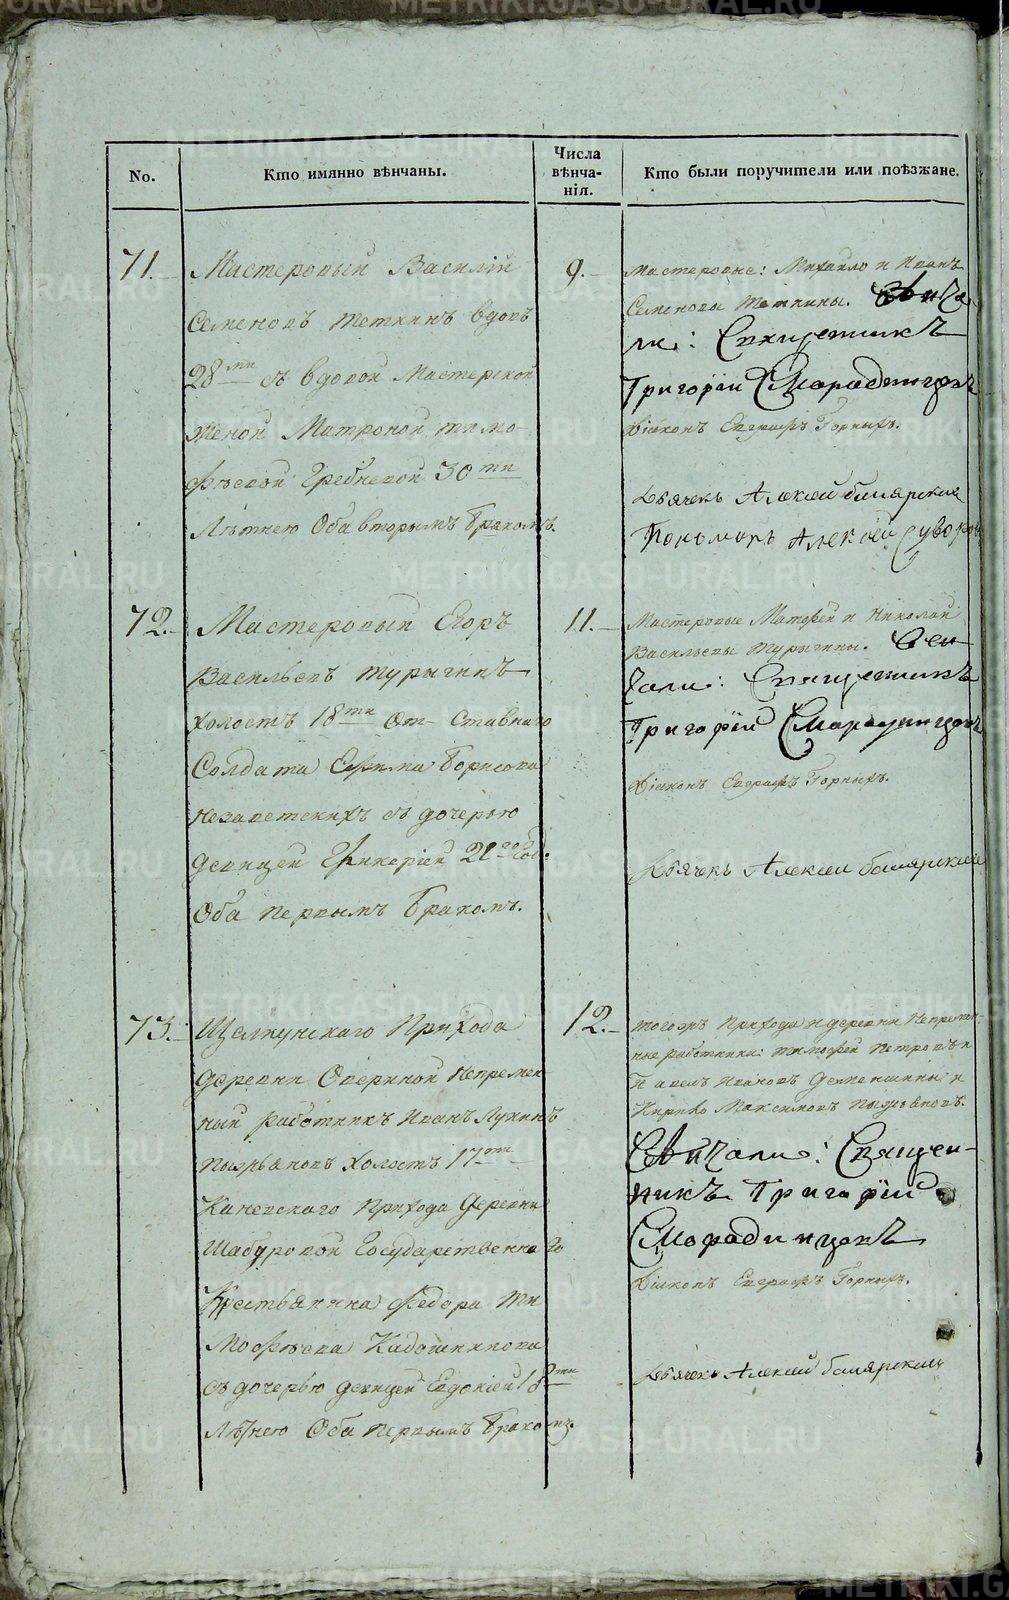 No.
Кто имянно вѣнчаны.
Числа
вѣнча-
нія.
Кто были поручители или поѣзжане.
71.
Мастеровый Василій
Семеновъ Теткинъ вдовъ
28ми съ вдовой Мастерской
женой Матроной Тимо-
фѣевой Гребневой 30ти
Лѣтнею Оба вторымъ бракомъ.
9.
Мастеровые: Михайло и Иванъ
Семеновы Теткины. Свенча-
ли: Священникъ
Григорій Смородинцовъ
Діаконъ Евграфъ Горныхъ.
Дьячекъ Алексей
Пономарь Алексей Суворовъ
72.
Мастеровый Егоръ
Васильевъ Турыгинъ
холостъ 18ти Отставнаго
Солдата Ефима Борисова
съ дочерью
девицей Гликеріей
Оба первымъ бракомъ.
11.
Мастеровые Матфей и Николай
Васильевы Турыгины. Свен-
чали: Священникъ
Григорій Смородинцовъ
Діаконъ Евграфъ Горныхъ.
Дьячекъ Алексей
73.
Щелкунскаго Прихода
деревни Авериной Непремен-
ный работникъ Иванъ Лукинъ
холостъ 17ти
Прихода деревни
Шабуровой Государственнаго
Крестьянина Федора Ти
мофѣева
съ дочерью девицей Евдокіей 18ти
Лѣтнею Оба первымъ бракомъ.
12.
Тогожъ Прихода и деревни Непремен-
ные работники: Тимофей Петровъ и
Павелъ Ивановъ и
Максимовъ
Свѣнчали: Священ-
никъ Григорій
Смородинцовъ
Діаконъ Евграфъ Горныхъ.
Дьячекъ Алексей
METRIKI.GASO-URAL.RU